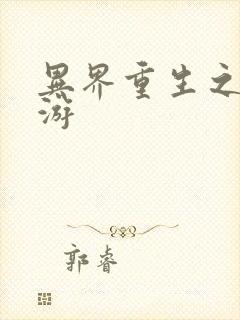 異界重生之
游
郭睿